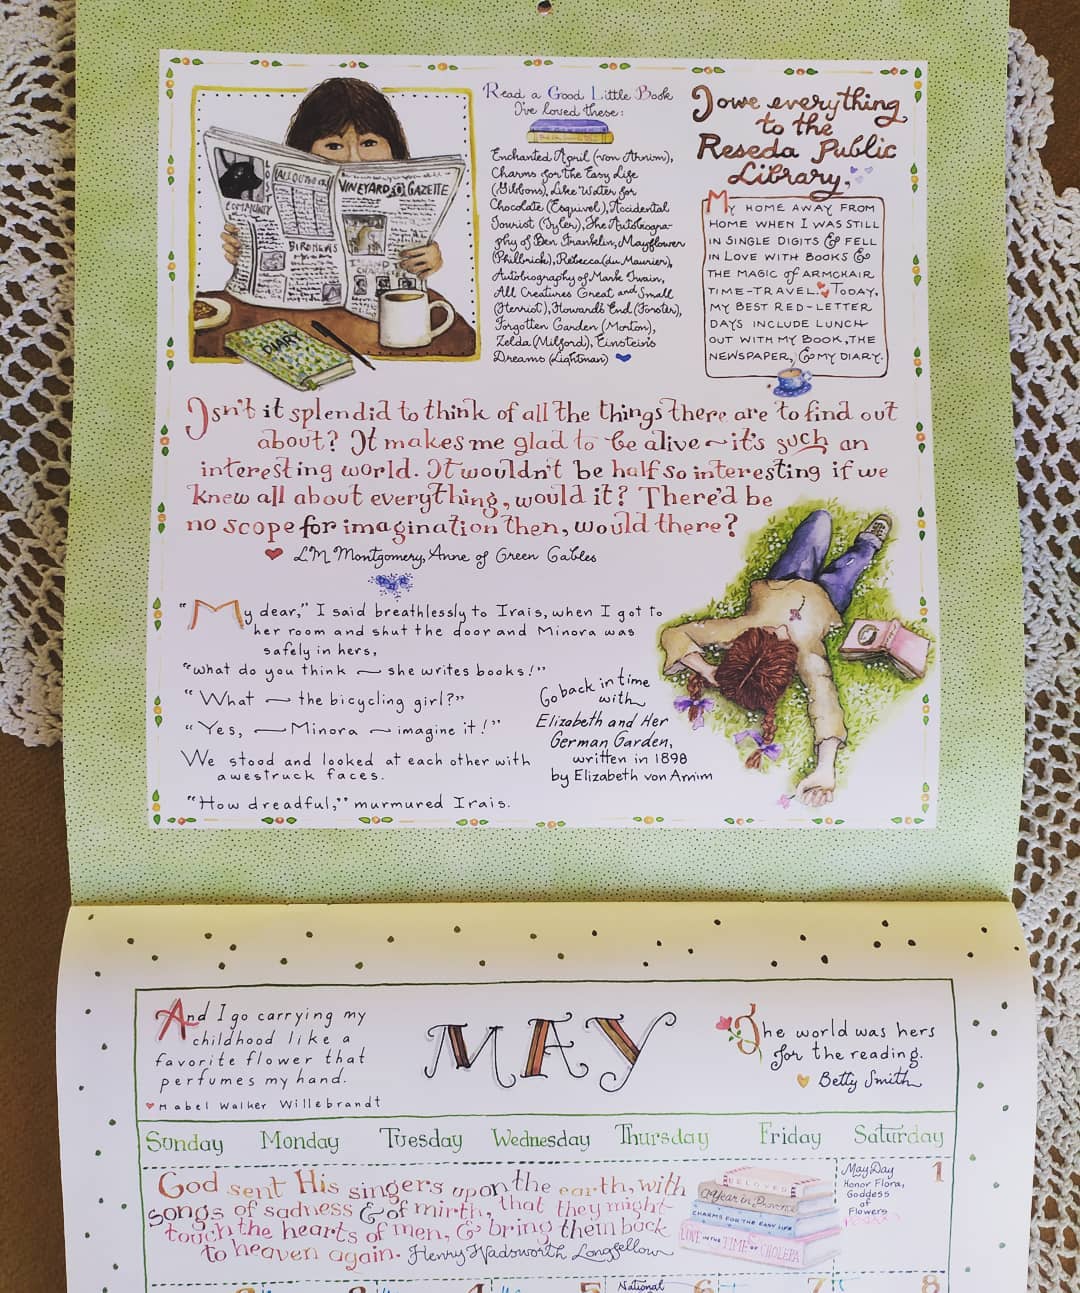 LOST
COMMUNITY
ALL OUTDOORS
BIRD NEWS
VINEYARD GAZETTE
DIARY
Read a Good Little Book
I've loved these:
Enchanted April (von Arnim),
Charms for the Easy Life
(Gibbons), Like Water for
Chocolate (Esquivel), Accidental
Tourist (Tyler), The Autobiogra-
phy of Ben Franklin, Mayflower
(Philbrick), Rebecca (du Maurier),
Autobiography of Mark Twain,
All Creatures Great and Small
(Herriot), Howards End (Forster),
Forgotten Garden (Morton),
Zelda (Milford), Einstein's
Dreams (Lightman)
I owe everything
to the
Reseda Public
Library,
MY HOME AWAY FROM
HOME WHEN I WAS STILL
IN SINGLE DIGITS & FELL
IN LOVE WITH BOOKS &
THE MAGIC of ARMCHAIR
TIME-TRAVEL. TODAY,
MY BEST RED-LETTER
DAYS INCLUDE LUNCH
OUT WITH MY BOOK, THE
NEWSPAPER, & MY DIARY.
Isn't it splendid to think of all the things there are to find out
about? It makes me glad to be alive ~ it's such an
interesting world. It wouldn't be half so interesting if we
knew all about everything, would it? There'd be
no scope for imagination then, would there?
LM Montgomery, Anne of Green Gables
"My dear," I said breathlessly to Irais, when I got to
her room and shut the door and Minora was
safely in hers,
"what do you think ~ she writes books!"
"What ~ the bicycling girl?"
"Yes, ~ Minora ~ imagine it!"
We stood and looked at each other with
awestruck faces.
"How dreadful," murmured Irais.
Go back in time
with
Elizabeth and Her
German Garden,
written in 1898
by Elizabeth von Arnim
And I go carrying my
childhood like a
favorite flower that
perfumes my hand.
Mabel Walker Willebrandt
MAY
The world was hers
for the reading.
Betty Smith
Sunday Monday Tuesday Wednesday Thursday Friday Saturday
God sent His singers upon the earth, with
songs of sadness & of mirth, that they might
touch the hearts of men, & bring them back
to heaven again. Henry Wadsworth Longfellow
BELOVED
A Year in Provence
CHARMS FOR THE EASY LIFE
LOVE IN THE TIME OF CHOLERA
May Day
Honor Flora,
Goddess
of
Flowers
1
2 3 4 5 National 6 7 8